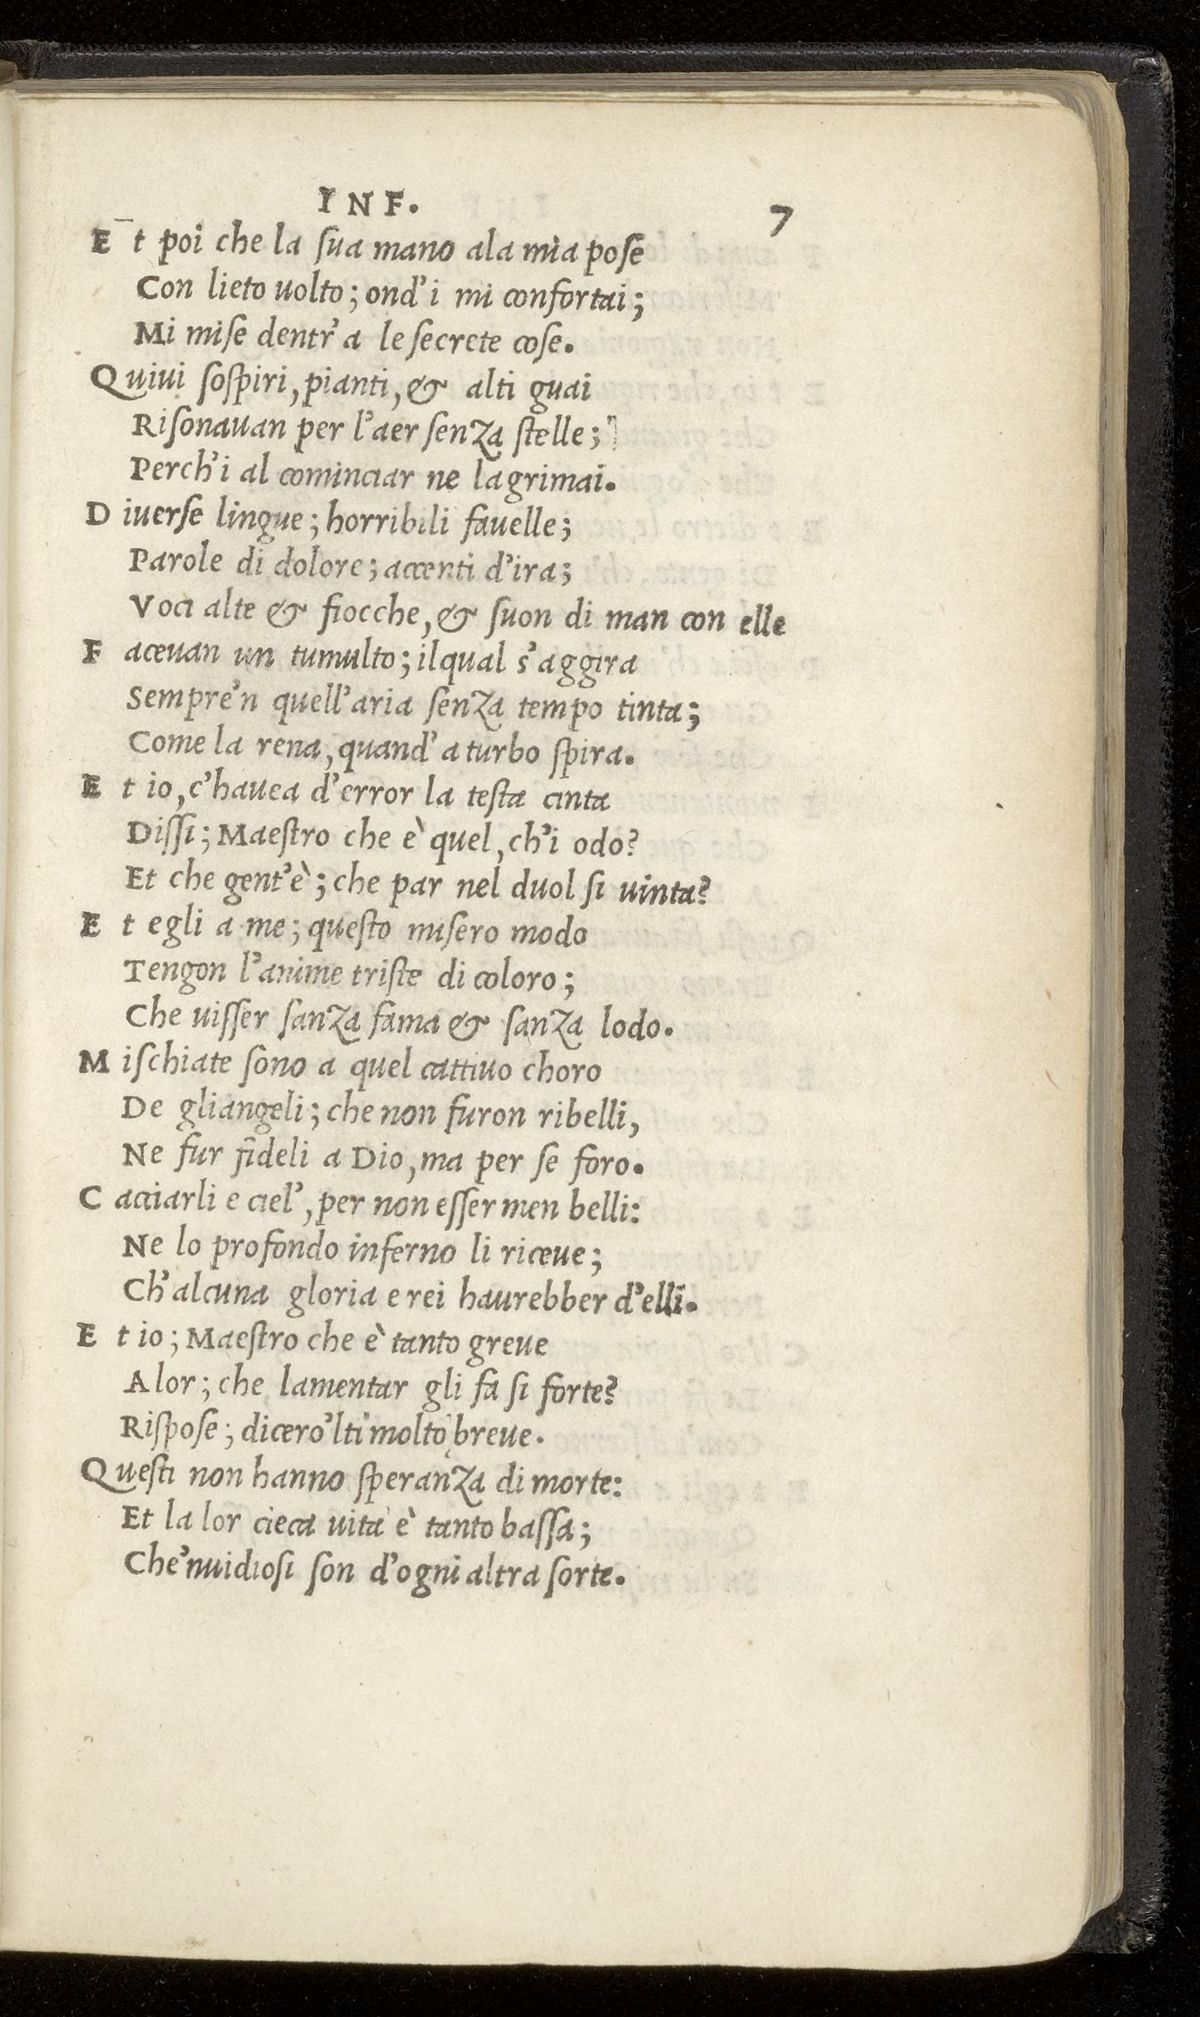 INF. 7
E t poi che la sua mano ala mia pose
Con lieto uolto; ond'i mi confortai;
Mi mise dentr'a le secrete cose.
Q uiui sospiri, pianti, & alti guai
Risonauan per l'aer senza stelle;
Perch'i al cominciar ne lagrimai.
D iuerse lingue; horribili fauelle;
Parole di dolore; accenti d'ira;
Voci alte & fiocche, & suon di man con elle
F aceuan un tumulto; ilqual s'aggira
Sempre'n quell'aria senza tempo tinta;
Come la rena, quand'a turbo spira.
E t io, c'hauea d'error la testa cinta
Dissi; Maestro che è quel, ch'i odo?
Et che gent'è; che par nel duol si uinta?
E t egli a me; questo misero modo
Tengon l'anime triste di coloro;
Che uisser sanza fama & sanza lodo.
M ischiate sono a quel cattiuo choro
De gliangeli; che non furon ribelli,
Ne fur fideli a Dio, ma per se foro.
C acciarli e ciel', per non esser men belli:
Ne lo profondo inferno li riceue;
Ch'alcuna gloria e rei haurebber d'elli.
E t io; Maestro che è tanto greue
A lor; che lamentar gli fa si forte?
Rispose; dicero'lti molto breue.
Q uesti non hanno speranza di morte:
Et la lor cieca uita è tanto bassa;
Che'nuidiosi son d'ogni altra sorte.